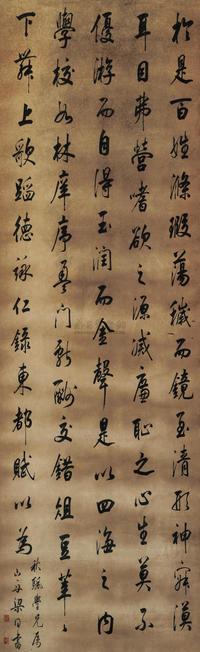 於是百姓滌瑕蕩穢而鏡至清形神寂漠
耳目弗營嗜欲之源滅廉恥之心生莫不
優游而自得玉潤而金聲是以四海之內
學校如林庠序盈門獻酬交錯俎豆莘〻
下舞上歌蹈德詠仁錄東都賦以為
學兄屬
山舟梁同書